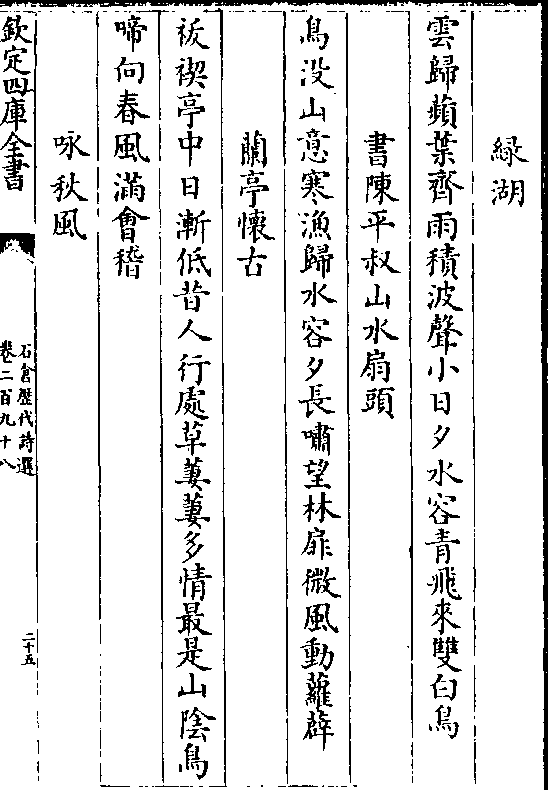 緑湖
雲歸蘋葉齊雨積波聲小日夕水容青飛來雙白鳥
書陳平叔山水扇頭
鳥没山意寒漁歸水容夕長嘯望林扉微風動蘿薜
蘭亭懷古
祓禊亭中日漸低昔人行處草萋萋多情最是山陰鳥
啼向春風滿會稽
咏秋風
欽定四庫全書
石倉歷代詩選
卷二百九十八
二十五